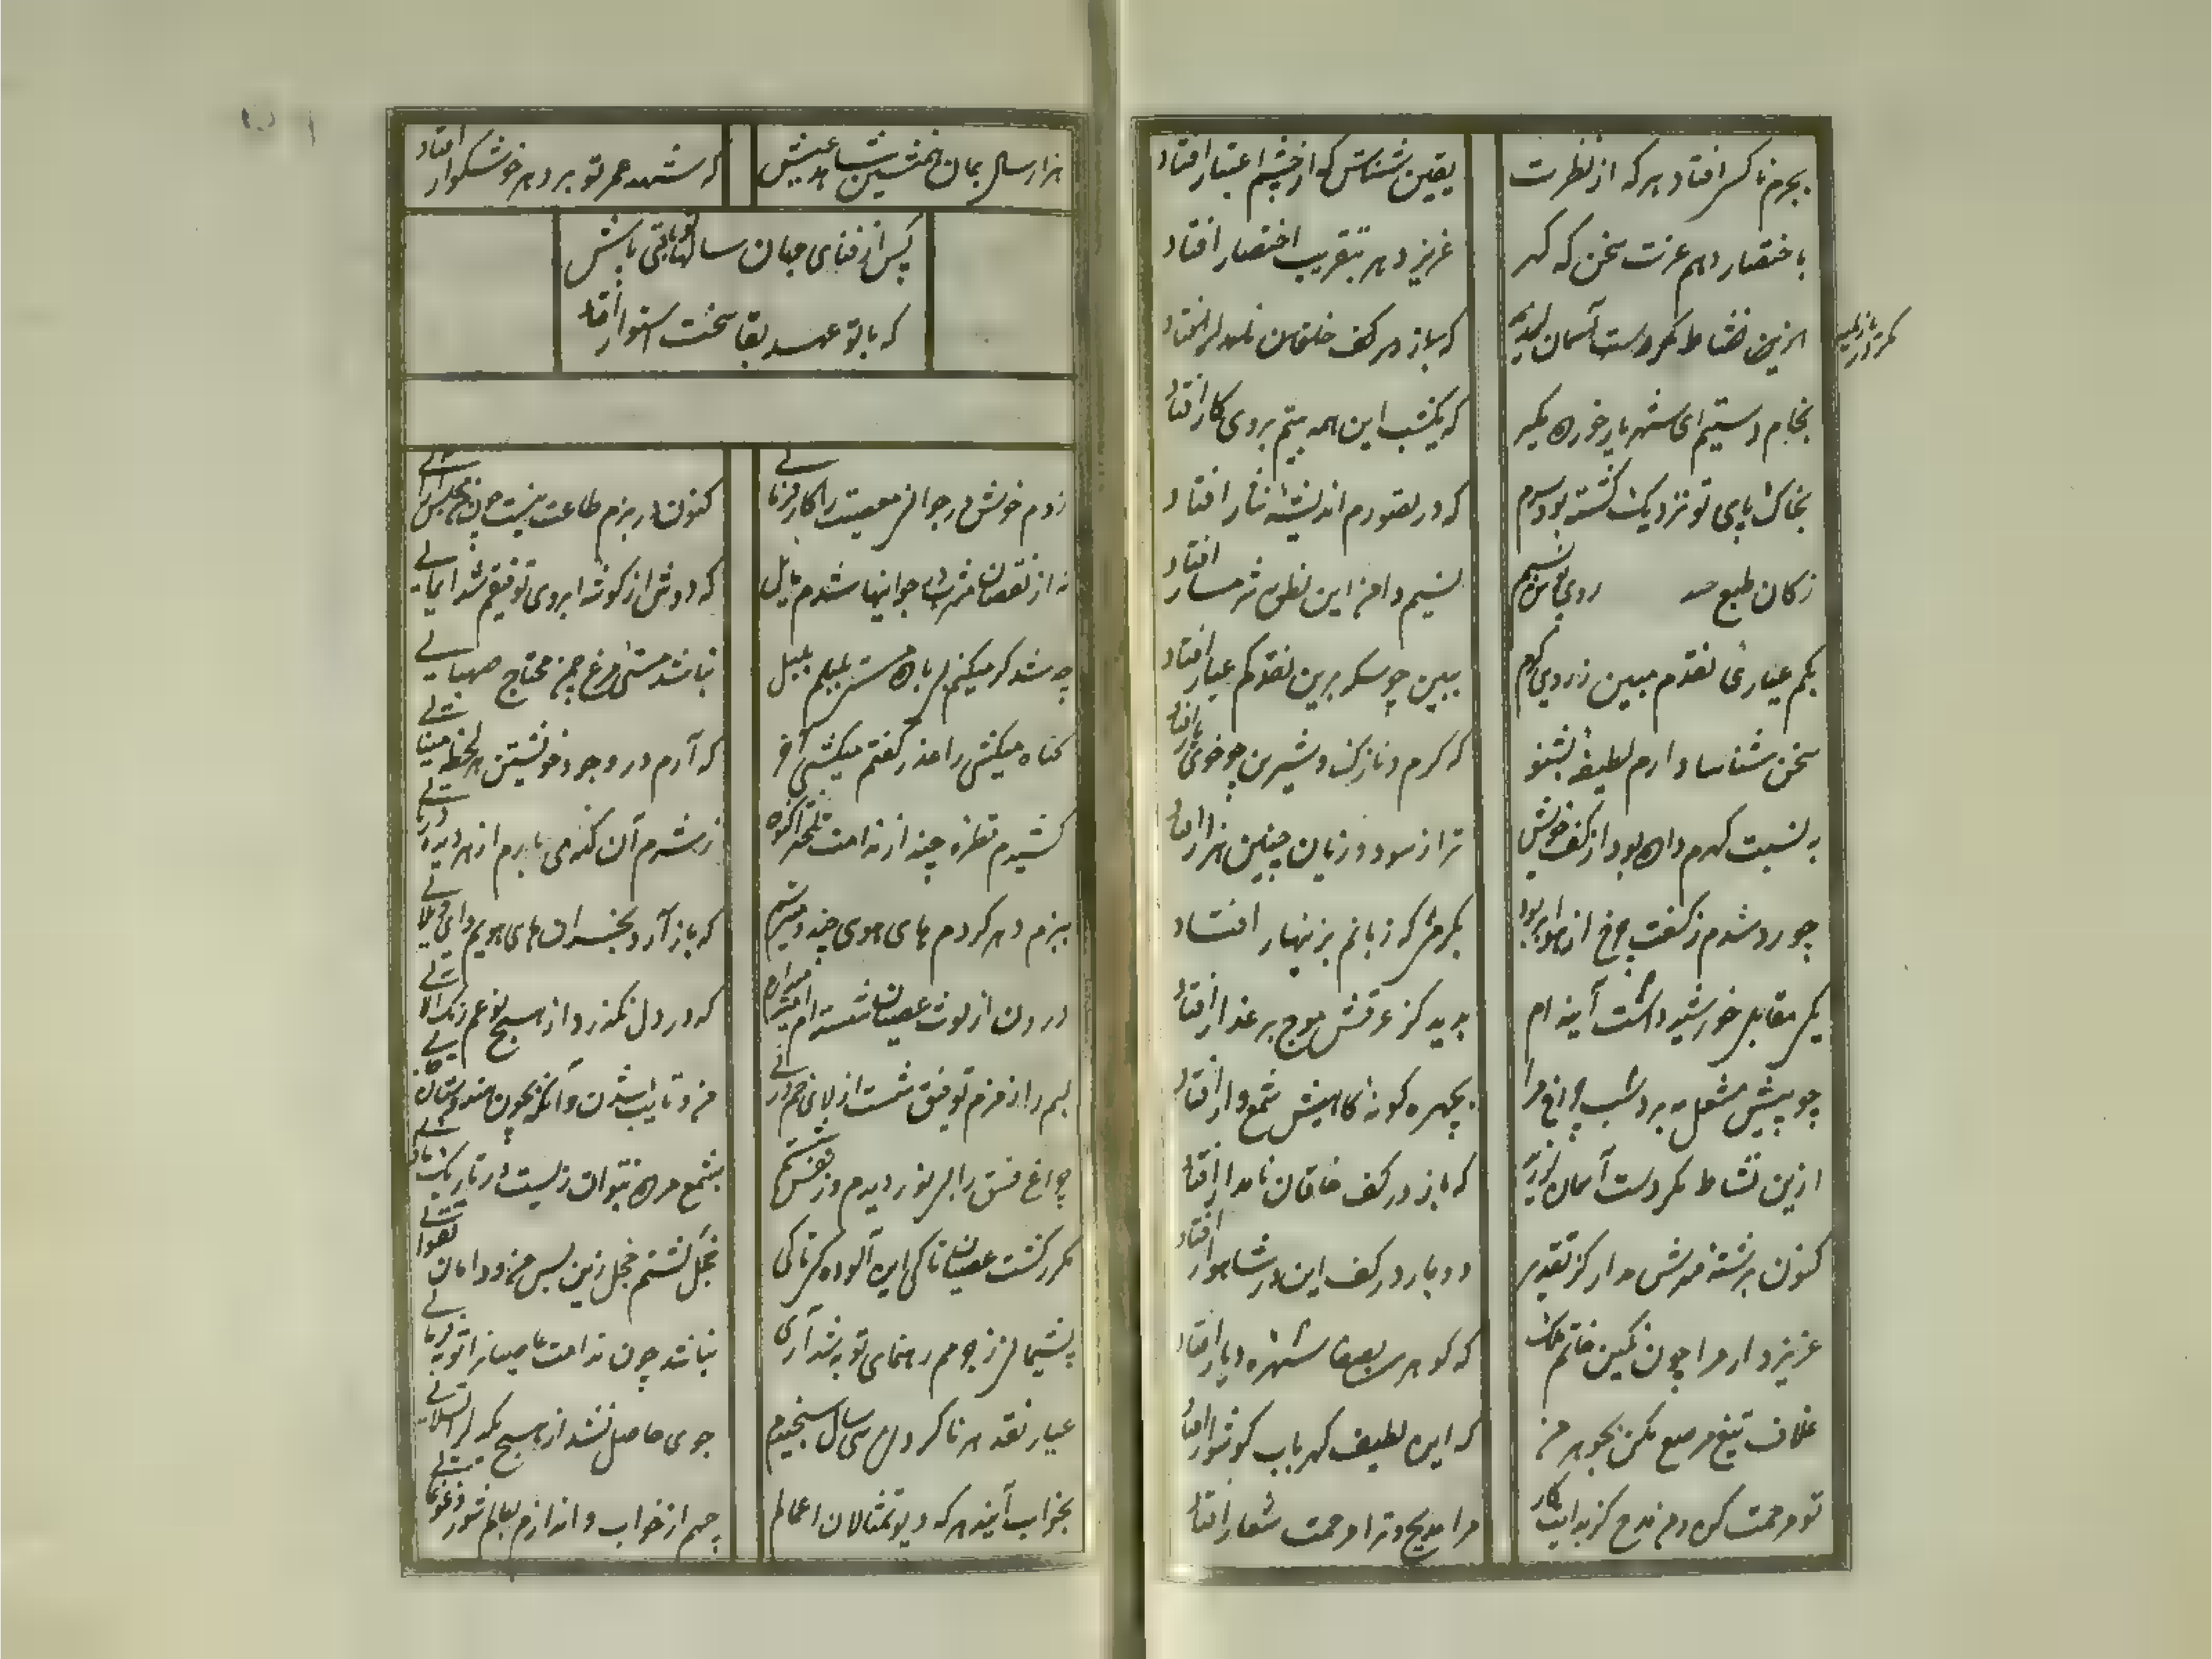 بجرم ناکس افتاد هر که از نظرت
یقین شناس که از چشم اعتبار افتاد
باختصار دهم عزت سخن که گهر
عزیز دهر بتقریب اختصار افتاد
ازین نشاط مگر دست آسمان
که باز در کف
بخام دستیم ای شهریار خورده مگیر
که یکشب این همه بیتم بروی کار افتاد
بخاک پای تو نزدیک گشته بود سرم
که در تصورم اندیشهٔ نثار افتاد
ز کان طبع
نسیم و از این نظر شرمسار افتاد
بکم عیاری نقدم مبین ز روی کرم
ببین چو سکه برین نقد کم عیار افتاد
سخن شناسا دارم لطیفهٔ بشنو
که گرم و نازک و شیرین چو خوی یار افتاد
به نسبت گهرم داده بود از کف خویش
ترا ز سود و زیان چنین هزار افتاد
چو رد شدم ز کفت چرخ از هوا بربود
بگرمئی که زبانم بزینهار افتاد
مقابل خورشید داشت آینه ام
بدید کز عرقش موج بر عذار افتاد
چو پیش مشعل مه برد شب چراغ مرا
بچهره گونهٔ کاهیش شمع وار افتاد
ازین نشاط مگر دست آسمان لرزید
که باز در کف خاقان نامدار افتاد
کنون برشتهٔ مدار کز تقدیر
دوباره در کف این در شاهوار افتاد
عزیز دار مرا چون نگین خاتم ملک
که گوهر شهره دیار افتاد
غلاف تیغ مرصع مکن بجوهر من
که این لطیف گهر باب گوشوار افتاد
تو مرحمت کن و من مدح کز بدایت کار
مرا مدیح و ترا مرحمت شعار افتاد
هزار سال بمان
که شهد عمر تو بر دهر خوشگوار افتاد
پس از فنای جهان سالها تو باقی باش
که با تو عهد بقا سخت استوار افتاد
زدم خوش در جوانی معصیت را کارفرمائی
کنون در بزم طاعت نیست چون من مجلس آرائی
نه از نقصان جوانیها شدم مایل
که دوش از گوشه ابروی توفیقم شد ایمائی
چه شد گر میکنم بی باده مستی بلبلم بلبل
نباشد مستی مرغ چمن محتاج صهبائی
گناه میکشی را عذر گفتم میکشی آخر
که آرم در وجود خویشتن هر لحظه مینائی
کشیدم قطره چند از ندامت
ز شرم آن کنون می بارم از هر دیده دریائی
ببزم دهر کردم های هوی چند و میترسم
که باز آرد بخسران های هویم وای ویلائی
درون از لوث عصیان شسته ام
که در دل نگذرد از هیچ نوعم رنگ آلائی
لبم را زمزم توفیق شست از لای خم
من و تایب شدن وانگه چون
چراغ فسق را بی نور دیدم
بشمع مرده نتوان زیست در تاریک
مکرر گشت عصیان تا کی این آلوده گی تا کی
خجل گشتم خجل زین پس من و دامان تقوائی
پشیمانی ز جرمم رهنمای توبه شد آری
نباشد چون ندامت عاصیان را توبه فرمائی
عیار نقد هر ناکرد سی سال سنجیدم
جوی حاصل نشد از هیچ
بخواب آیند هر گه دیو تمثالان اعمالم
جهم از خواب و اندازم بعالم شور و غوغائی